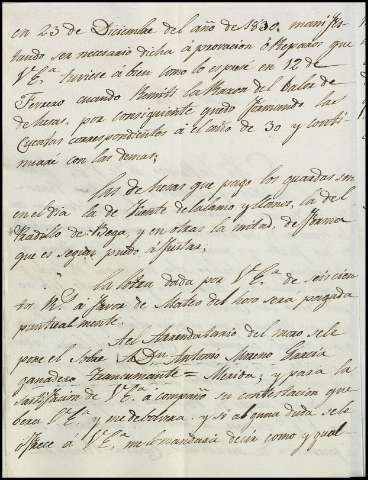 en 23 de Diciembre del año de 1830. manifes-
tando ser necesario dicha aprovacion ô Reparos que
V.ª E.ª tuviere a bien como lo espuse en 12 de
Ferrero cuando Remiti la Razon del Valor de
de heras, por consiguiente quedo formando las
Cuentas correspondientes â el año de 30 y conti-
nuaré con las demas;
las de heras que pago los guardas son
en el dia la de fuente de lalamo y llanos, la del
Pradillo de Bega, y en otras la mitad, de forma
que es segun pudo ajustar.
la lotra dada por V.ª E.ª de seiscien-
tos R.ˢ â favor de Mateo del horo sera pagada
puntualmente.
Ael Arrendatario del moro sele
pone el Sobre A Dⁿ Antonio Moreno Garcia
ganadero Transumante = Merida; y para la
satisfacion de V.ª E.ª acompaño su contestacion que
bera V.ª E.ª y me debolvera. y si alguna duda sele
ofrece â V.ª E.ª me lo mandara decir como y qual